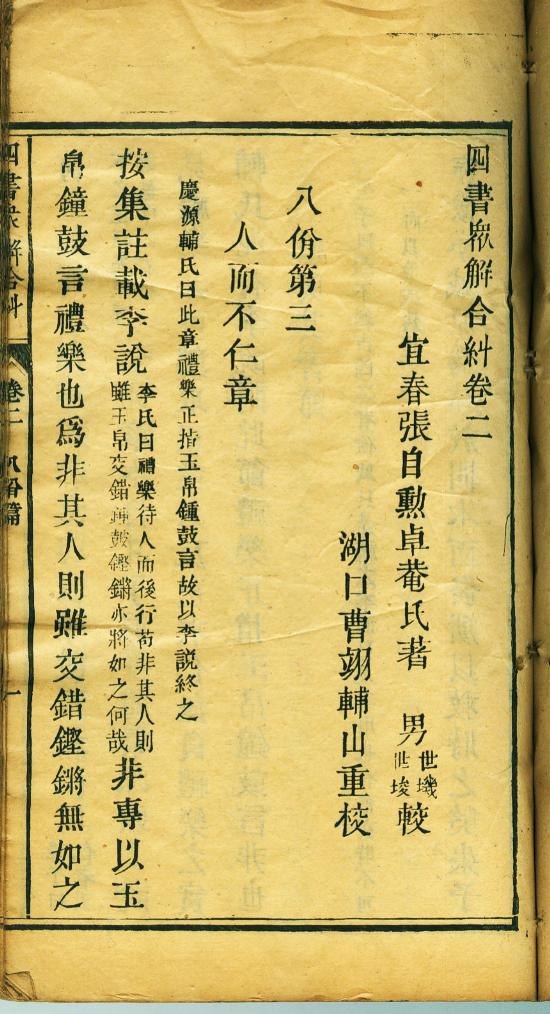 四書眾解合糾卷二
宜春張自勳卓菴氏著 男世㙨世埈較
湖口曹翊輔山重校
八佾第三
人而不仁章
慶源輔氏曰此章禮樂正指玉帛鍾鼓言故以李說終之
按集註載李說李氏曰禮樂待人而後行苟非其人則雖玉帛交錯鍾鼓鏗鏘亦將如之何哉非專以玉
帛鐘鼓言禮樂也爲非其人則雖交錯鏗鏘無如之
四書眾解合糾 卷二 八佾篇 一